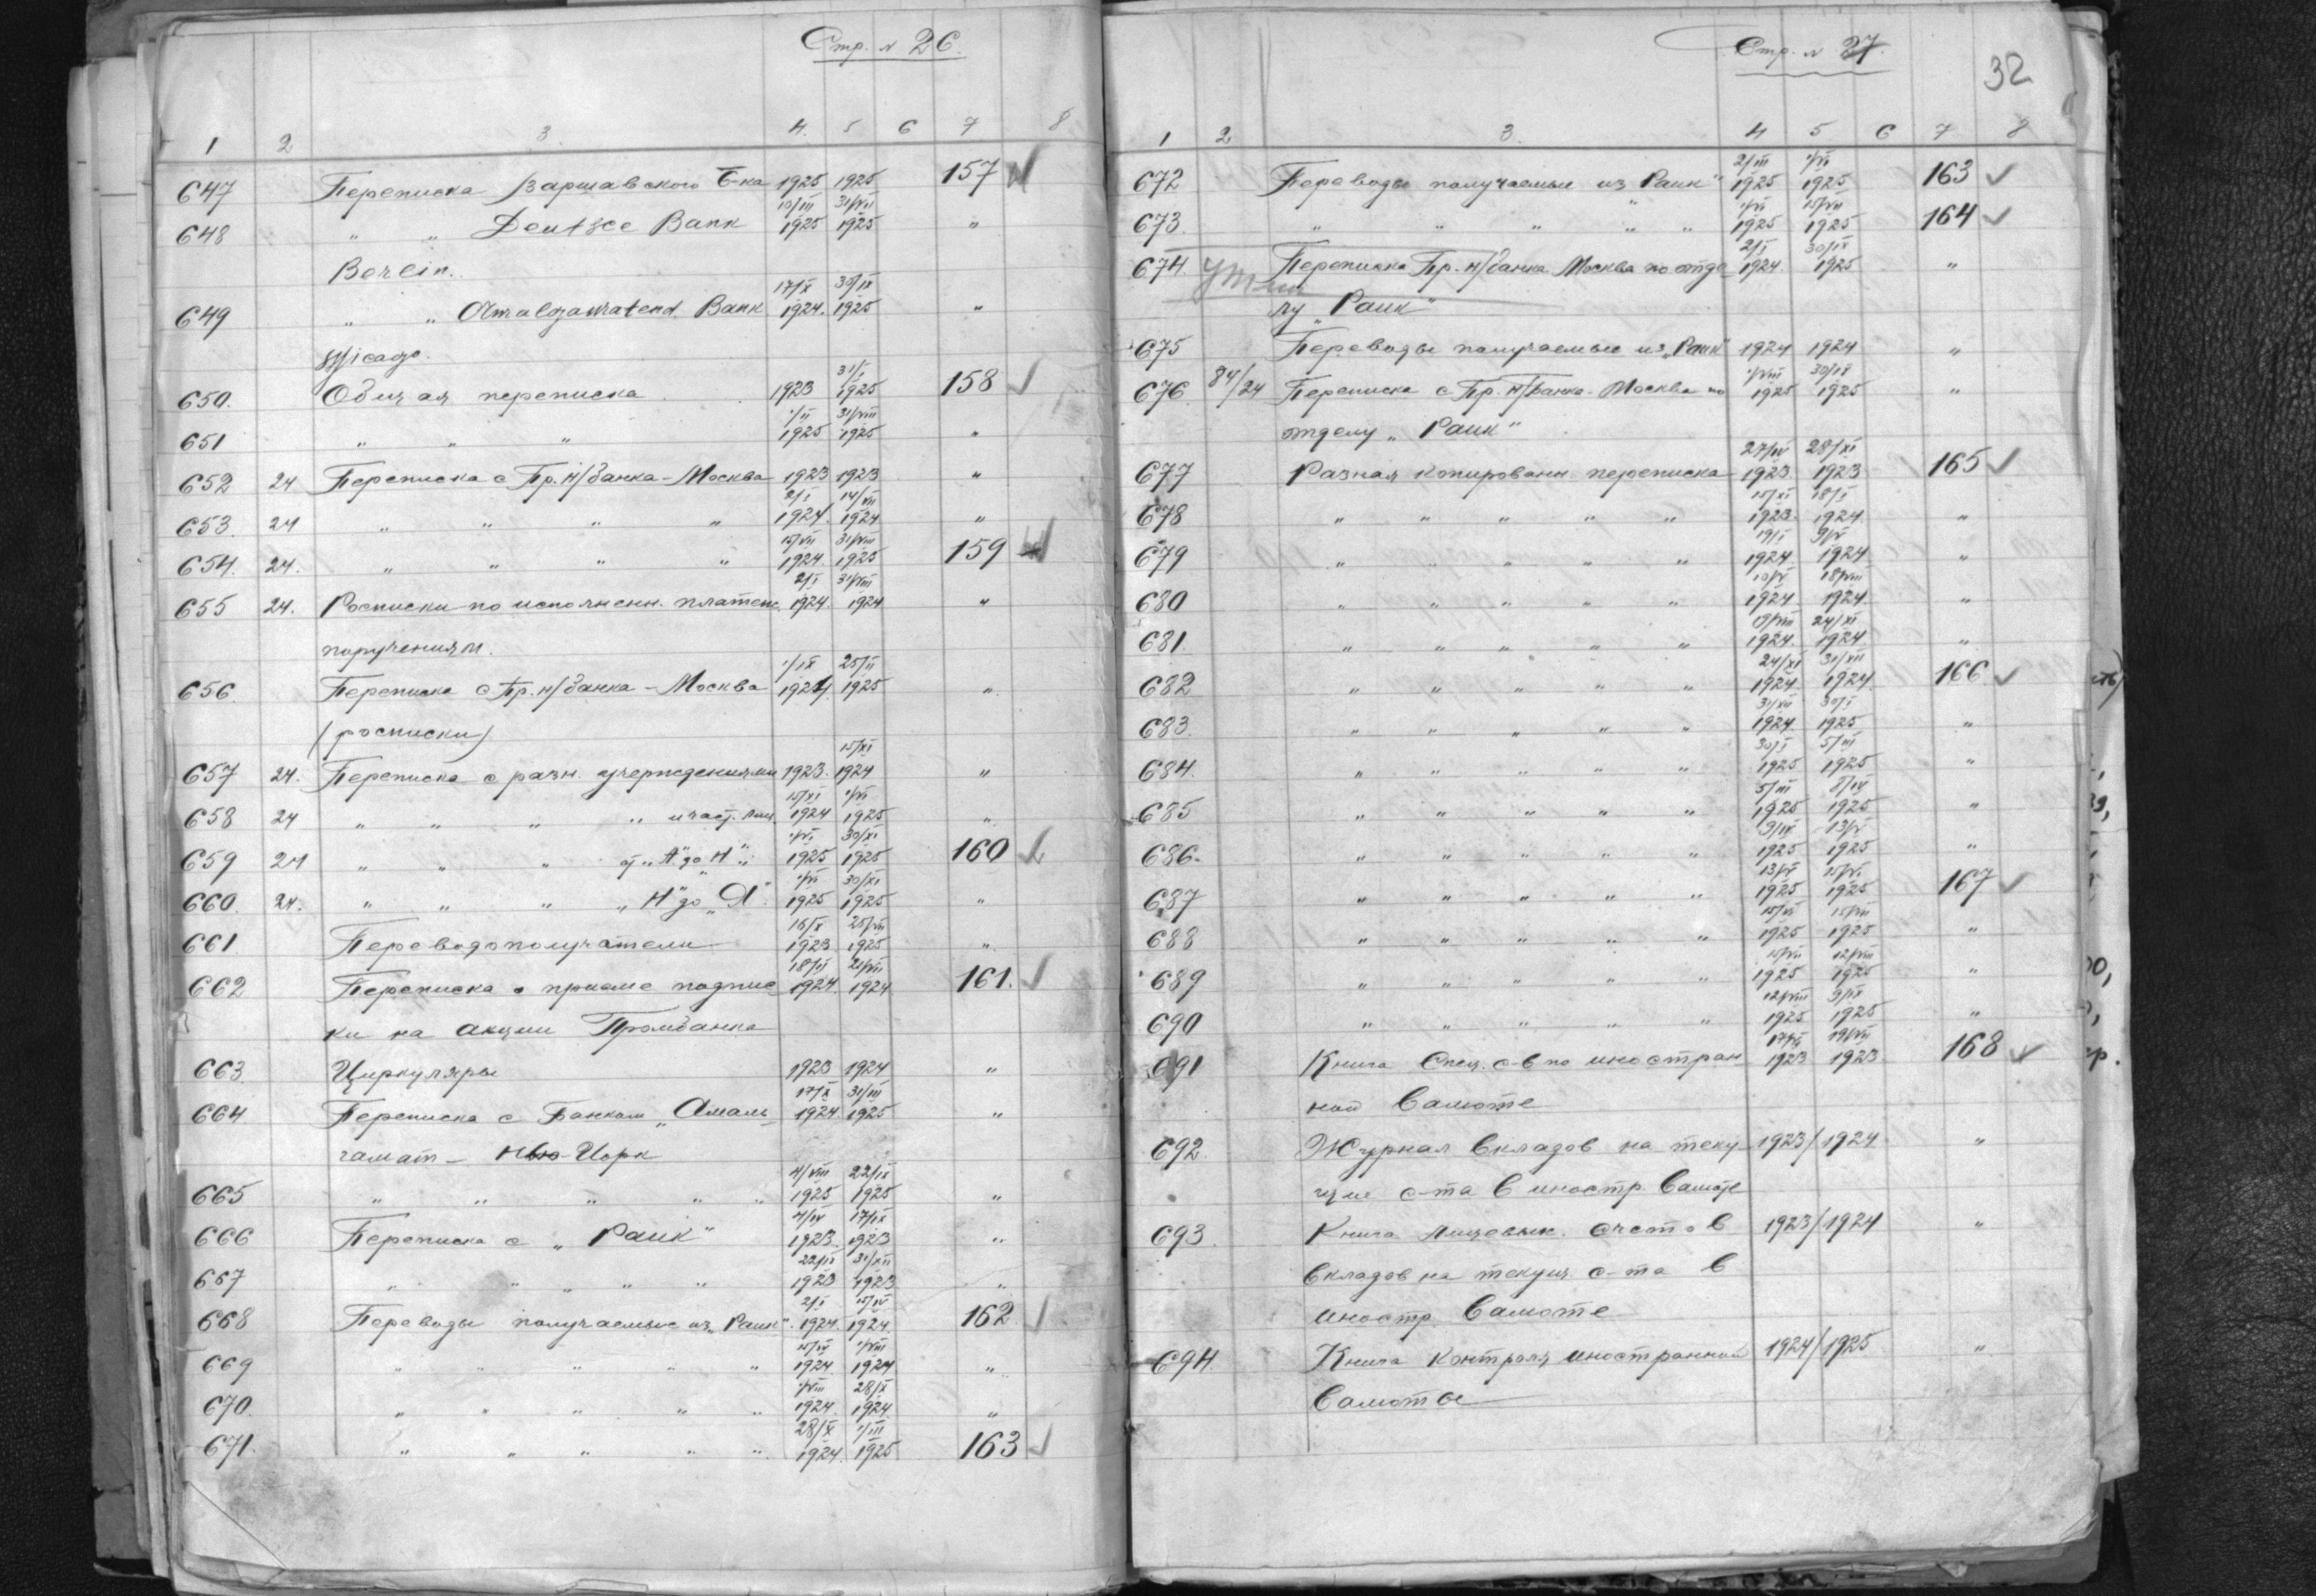 Стр. N 26.
1 2 3 4. 5 6 7 8
647 Переписка Варшавского Б-ка 1925 1925 157
10/III 31/VII
648 " " Deutsce Bank 1925 1925 "
Berlin.
17/X 30/IX
649 " " Amalgamatend. Bank 1924. 1925 "
31/I
650. Общая переписка 1923 1925 158
1/II 31/VIII
651 " " " 1925 1925 "
652 24 Переписка с Пр. Н/банка - Москва 1923 1923 "
2/I 14/VII
653. 24 " " " " 1924. 1924 "
15/VII 31/VIII
654. 24. " " " " 1924. 1925 159
2/I 31/VIII
655 24. Росписки по исполненн. платеж. 1924. 1924 "
поручениям.
1/IX 25/II
656. Переписка с Пр. н/банка - Москва 1924. 1925 "
(росписки)
15/XI
657 24. Переписка с разн. учереждениями 1923. 1924 "
15/XI 1/VI
658 24 " " " " и част. лиц. 1924 1925 "
1/VI 30/XI
659 24 " " " от "А" до "Н" 1925 1925 160
1/VI 30/XI
660. 24. " " " "Н" до "Я" 1925 1925 "
16/X 25/VII
661. Переводополучатели 1923 1925 "
18/II 21/VII
662 Переписка о приеме подпис 1924. 1924 161.
ки на акции Промбанка
663. Циркуляры 1923 1924 "
17/X 31/III
664 Переписка с Банком "Амаль 1924 1925 "
гамат - Нью-Иорк
4/VIII 22/IX
665 " " " " " 1925 1925 "
4/IV 17/IX
666 Переписка с "Раик" 1923. 1923 "
22/IX 31/XII
667 " " " " " 1923 1923 "
2/I 15/IV
668 Переводы получаемые из "Раик". 1924. 1924 162
15/IV 1/VIII
669 " " " " " 1924. 1924 "
1/VIII 28/X
670. " " " " " 1924. 1924 "
28/X 1/III
671. " " " " " 1924. 1925 163
Стр. N 27.
32
1 2 3. 4 5 6 7 8
2/III 1/VI
672 Переводы получаемые из "Раик" 1925 1925 163
1/VI 15/VII
673. " " " " " 1925 1925 164
2/I 30/IX
674. Переписка Пр. Н/банка Москва по отде 1924. 1925 "
лу "Раик"
675 Переводы получаемые из "Раик" 1924 1924 "
1/VIII 30/IX
676. 84/24 Переписка с Пр. Н/Банка - Москва по 1925 1925 "
отделу "Раик"
27/IV 28/XI
677 Разная копированн. переписка 1923 1923 165
15/XI 18/I
678 " " " " " 1923. 1924. "
19/I 9/V
679 " " " " " 1924 1924 "
10/V 18/VIII
680 " " " " " 1924 1924. "
19/VIII 24/XI
681. " " " " " 1924. 1924 "
24/XI 31/XII
682 " " " " " 1924. 1924. 166
31/XII 30/I
683. " " " " " 1924. 1925 "
30/I 5/III
684. " " " " " 1925 1925 "
5/III 8/IV
685 " " " " " 1925 1925 "
9/IV 13/V
686. " " " " " 1925 1925 "
13/V 15/VI
687 " " " " " 1925 1925 167
15/VI 15/VII
688 " " " " " 1925 1925 "
15/VII 12/VIII
689 " " " " " 1925 1925 "
12/VIII 9/IX
690 " " " " " 1925 1925 "
19/VII
691 Книга Спец. с-в по иностран 1923 1923 168
ной валюте
692. Журнал вкладов на теку 1923/1924 "
щие с-та в иностр. валюте
693. Книга Лицевых. счетов 1923/1924 "
вкладов на текущ. с-та в
иностр. валюте
694. Книга контроля иностранной 1924/1925 "
валюты